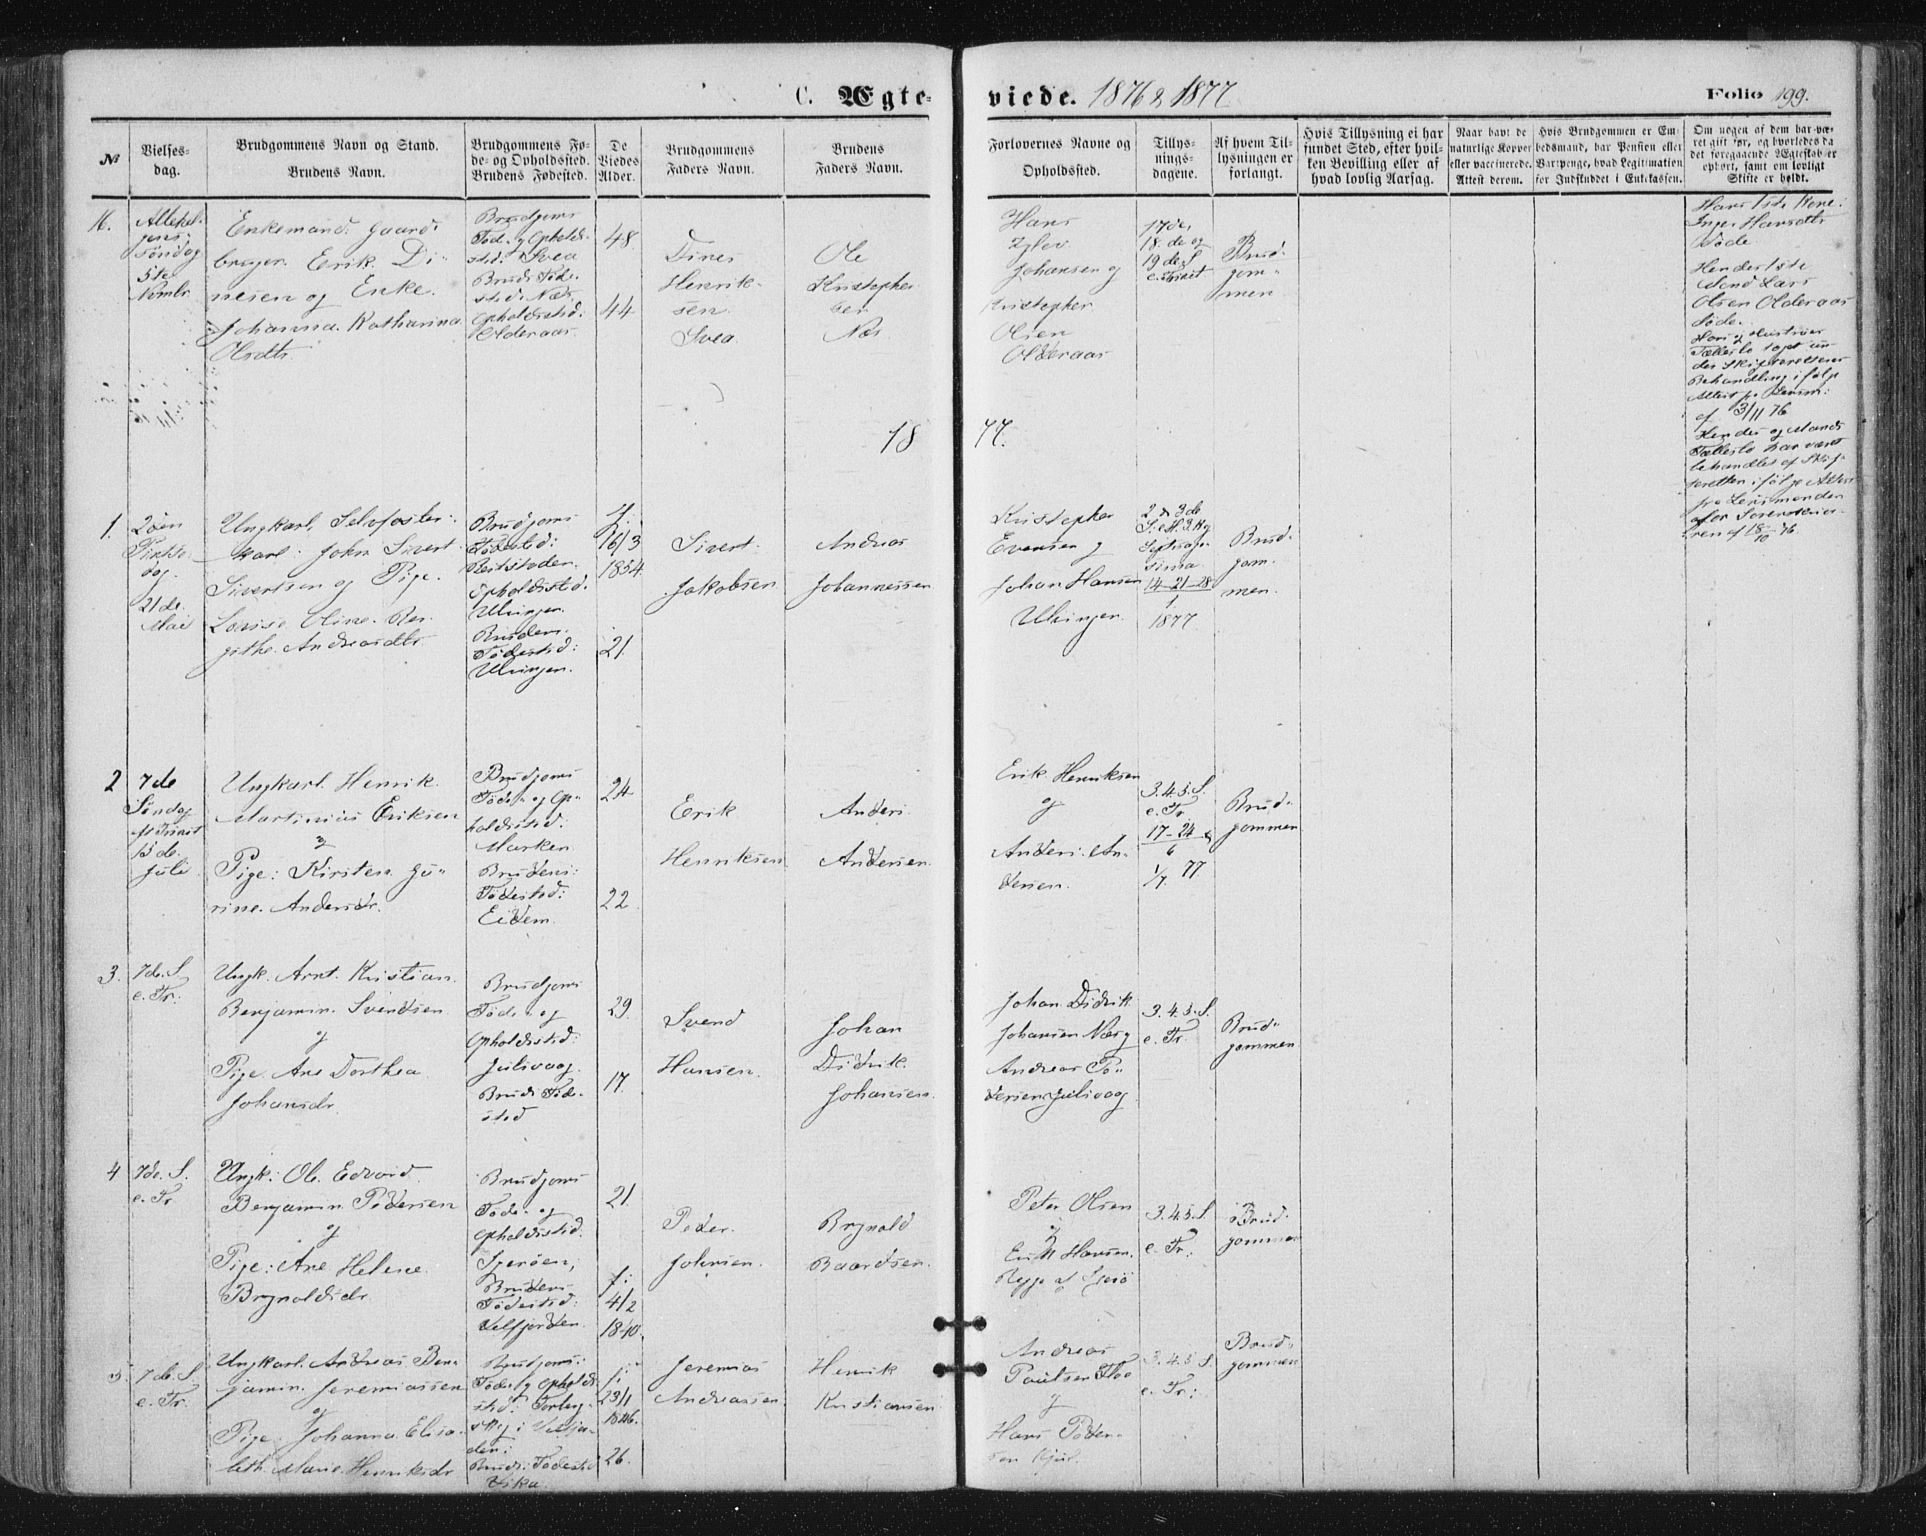 C. Ægte-
viede. 1876 & 1877
Folio 199.
№
Vielses-
dag.
Brudgommens Navn og Stand.
Brudens Navn.
Brudgommens Fø-
de- og Opholdssted.
Brudens Fødested.
De
Viedes
Alder.
Brudgommens
Faders Navn.
Brudens
Faders Navn.
Forlovernes Navne og
Opholdssted.
Tillys-
nings-
dagene.
Af hvem Til-
lysningen er
forlangt.
Hvis Tillysning ei har
fundet Sted, efter hvil-
ken Bevilling eller af
hvad lovlig Aarsag.
Naar havt de
naturlige Kopper
eller vaccinerede.
Attest derom.
Hvis Brudgommen er Em-
bedsmand, har Pension eller
Vartpenge, hvad Legitimation
for Indskuddet i Enkekassen.
Om nogen af dem har væ-
ret gift før, og hvorledes da
det foregaaende Ægteskab er
ophørt, samt om lovligt
Skifte er holdt.
16.
Allehel-
gens
Søndag
5te
Novmbr
Enkemand: Gaard-
bruger Erik Di-
nesen og Enke
Johanna Katharina
Olsdtr.
Brudgoms
Føde- og Opholds-
sted: Svea
Bruds Føde-
sted: Næs
Opholdssted:
Olderaas
48
44
Dines
Henrik-
sen
Svea
Ole
Kristopher
sen
Næs
Hans
Zylov
Johansen og
Kristopher
Olsen
Olderaas
17de,
18.de og
19de S.
e. Trinit
Brud-
gom-
men
Hans 1ste Kone:
Inger Hansdtr
døde
Hendes 1ste
Mand Lars
Olsen Olderaas
døde.
Hans og Hustrues
Fællesbo tagt un-
der Skifterettens
Behandling ifølge
Attest fra Lensm:
af 3/11 76
Hendes og Mands
Fællesbo har været
behandlet af Skif-
teretten ifølge Attest
fra Lensmanden
af 18/10 76.
1877.
1.
2den
Pintse
dag
21de
Mai
Ungkarl, Selvfoster-
karl: John Sivert
Sivertsen og Pige
Lovise Oline Ber
githe Andreasdtr.
Brudgoms
Fødested:
Reitstøden
Opholdssted:
Ulvingen
Brudens
Fødested:
Ulvingen.
f.
16/3
1854
21
Sivert
Jakobsen
Andreas
Johannessen
Kristopher
Evensen og
Johan Hansen
Ulvingen
2 & 3de
Septuage-
sima
14-21-28
1
1877
Brud-
gom-
men.
2
7de
Søndag
ef Trinit
15de
Juli
Ungkarl Henrik
Martinius Eriksen
og
Pige: Kirsten Jo-
rine Andersdr.
Brudgoms
Føde- og Op-
holdssted:
Marken
Brudens
Fødested:
Eidem.
24
22
Erik
Henriksen
Anders
Andersen
Erik Henriksen
og
Anders An-
dersen.
3.4.5.S.
e. Tr.
17-24 &
6
1/7 77
Brud-
gommen
3.
7de S.
e. Tr:
Ungk. Arnt Kristian
Benjamin Svendsen
og
Pige Ane Dorthea
Johansdr.
Brudgoms
Føde- og
Opholdssted:
Julivaag.
Bruds Føde-
sted
29
17
Svend
Hansen
Johan
Didrik
Johansen
Johan Didrik
Johansen Næs og
Andreas Pe-
dersen Julivaag
3.4.5.S.
e. Tr.
Brud-
gommen
4
7de S.
e. Tr.
Ungk: Ole Edvard
Benjamin Pedersen
og
Pige: Ane Helene
Brynoldsdr.
Brudgoms
Føde- og
Opholdssted.
Igerøen,
Brudens
Fødested:
Velfjorden
21
f:
4/2
1840.
Peder
Johnsen
Brynold
Baardsen.
Peter Olsen
og
Erik Hansen
Rygge af Igerø
3.4.5.S.
e. Tr:
Brud-
gommen
5
7de S
e. Tr.
Ungkarl Andreas Ben-
jamin Jeremiassen
og
Pige Johanna Elisa-
beth Marie Henriksdr
Brudgoms
Føde- og Opholds
sted: Torberg-
skog i Velfjor-
den:
Bruds Fødested
Vika.
f:
23/1
1846.
26.
Jeremias
Andreassen
Henrik
Kristiansen
Andreas
Paulsen Floo
og
Hans Peder-
sen Kjul.
3.4.5 S.
e. Tr:
Brud-
gommen